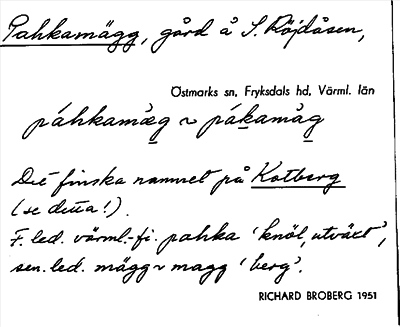 Pahkamägg, gård å S. Röjdåsen,
Östmarks sn, Fryksdals hd, Värml. län
páhkamäg ~ pákamåg
Det finska namnet på Kotberg
(se detta!).
F. led. värml.-fi. pahka 'knöl, utväxt',
sen. led. mägg ~ magg 'berg'.
RICHARD BROBERG 1951